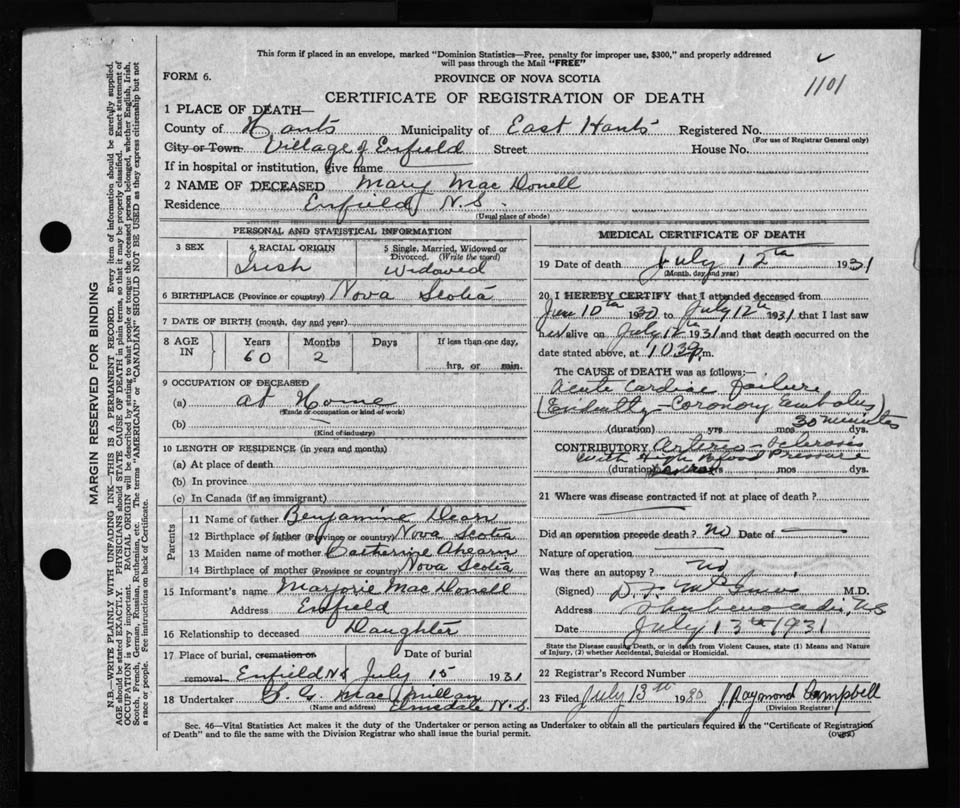 This form if placed in an envelope, marked "Dominion Statistics—Free, penalty for improper use, $300," and properly addressed
will pass through the Mail "FREE"
FORM 6.
PROVINCE OF NOVA SCOTIA
1101
CERTIFICATE OF REGISTRATION OF DEATH
1 PLACE OF DEATH—
County of Hants Municipality of East Hants Registered No.
(For use of Registrar General only)
City or Town Village of Enfield Street House No.
If in hospital or institution, give name
2 NAME OF DECEASED Mary MacDonell
Residence Enfield N.S.
(Usual place of abode)
PERSONAL AND STATISTICAL INFORMATION
3 SEX
4 RACIAL ORIGIN
Irish
5 Single, Married, Widowed or
Divorced. (Write the word)
Widowed
6 BIRTHPLACE (Province or country) Nova Scotia
7 DATE OF BIRTH (month, day and year)
8 AGE IN
Years Months Days If less than one day,
60 2
hrs. or min.
9 OCCUPATION OF DECEASED
(a) At Home
(Trade or occupation or kind of work)
(b)
(Kind of industry)
10 LENGTH OF RESIDENCE (in years and months)
(a) At place of death
(b) In province
(c) In Canada (if an immigrant)
Parents
11 Name of father Benjamine
12 Birthplace of father (Province or country) Nova Scotia
13 Maiden name of mother Catherine Ahearn
14 Birthplace of mother (Province or country) Nova Scotia
15 Informant's name Marjorie MacDonell
Address Enfield
16 Relationship to deceased Daughter
17 Place of burial, cremation or Date of burial
removal Enfield N.S July 15 1931
18 Undertaker MacMillan
(Name and address) Elmsdale N.S.
MEDICAL CERTIFICATE OF DEATH
19 Date of death July 12th 1931
(Month, day and year)
20 I HEREBY CERTIFY that I attended deceased from
10th 1930 to July 12th 1931 that I last saw
her alive on July 12th 1931 and that death occurred on
date stated above, at p.m.
The CAUSE OF DEATH was as follows:—
Acute Cardiac failure
Coronory embolus)
30 minutes
(duration) yrs mos dys.
CONTRIBUTORY Arterio-Sclerosis
with High Blood Pressure
(duration) yrs mos dys.
21 Where was disease contracted if not at place of death?
Did an operation precede death? No Date of
Nature of operation
Was there an autopsy? No
(Signed) M.D.
Address Shubenacadie, NS
Date July 13th 1931
State the Disease causing Death, or in death from Violent Causes, state (1) Means and Nature
of Injury, (2) whether Accidental, Suicidal or Homicidal.
22 Registrar's Record Number
23 Filed July 13th 1930 J Raymond Campbell
(Division Registrar)
Sec. 46—Vital Statistics Act makes it the duty of the Undertaker or person acting as Undertaker to obtain all the particulars required in the "Certificate of Registration
of Death" and to file the same with the Division Registrar who shall issue the burial permit.
(over)
MARGIN RESERVED FOR BINDING
N.B.—WRITE PLAINLY WITH UNFADING INK—THIS IS A PERMANENT RECORD. Every item of information should be carefully supplied.
AGE should be stated EXACTLY. PHYSICIANS should STATE CAUSE OF DEATH in plain terms, so that it may be properly classified. Exact statement of
OCCUPATION is very important. RACIAL ORIGIN will be described by stating to what people or tongue the deceased person belonged, whether English, Irish,
Scotch, French, German, Russian, Ruthenian, etc. The terms "AMERICAN" or "CANADIAN" SHOULD NOT BE USED as they express citizenship but not
a race or people. See instructions on back of Certificate.